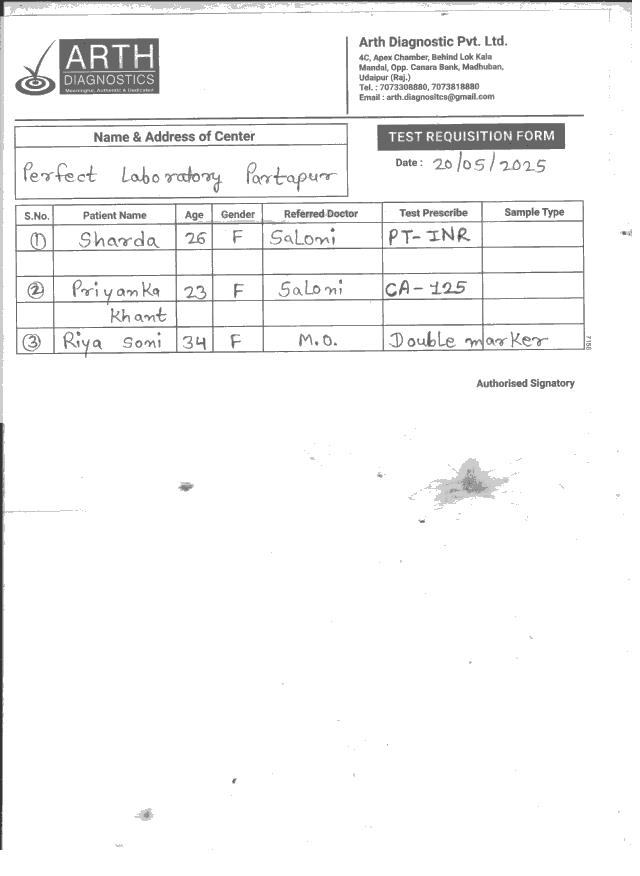 ARTH
DIAGNOSTICS
Meaningful, Authentic & Dedicated
Arth Diagnostic Pvt. Ltd.
4C, Apex Chamber, Behind Lok Kala
Mandal, Opp. Canara Bank, Madhuban,
Udaipur (Raj.)
Tel. : 7073308880, 7073818880
Email : arth.diagnositcs@gmail.com
Name & Address of Center
TEST REQUISITION FORM
Perfect Laboratory Partapur
Date : 20/05/2025
S.No. Patient Name Age Gender Referred Doctor Test Prescribe Sample Type
1 Sharda 26 F Saloni PT-INR
2 Priyanka 23 F Saloni CA-125
Khant
3 Riya Soni 34 F M.O. Double marker
7150
Authorised Signatory